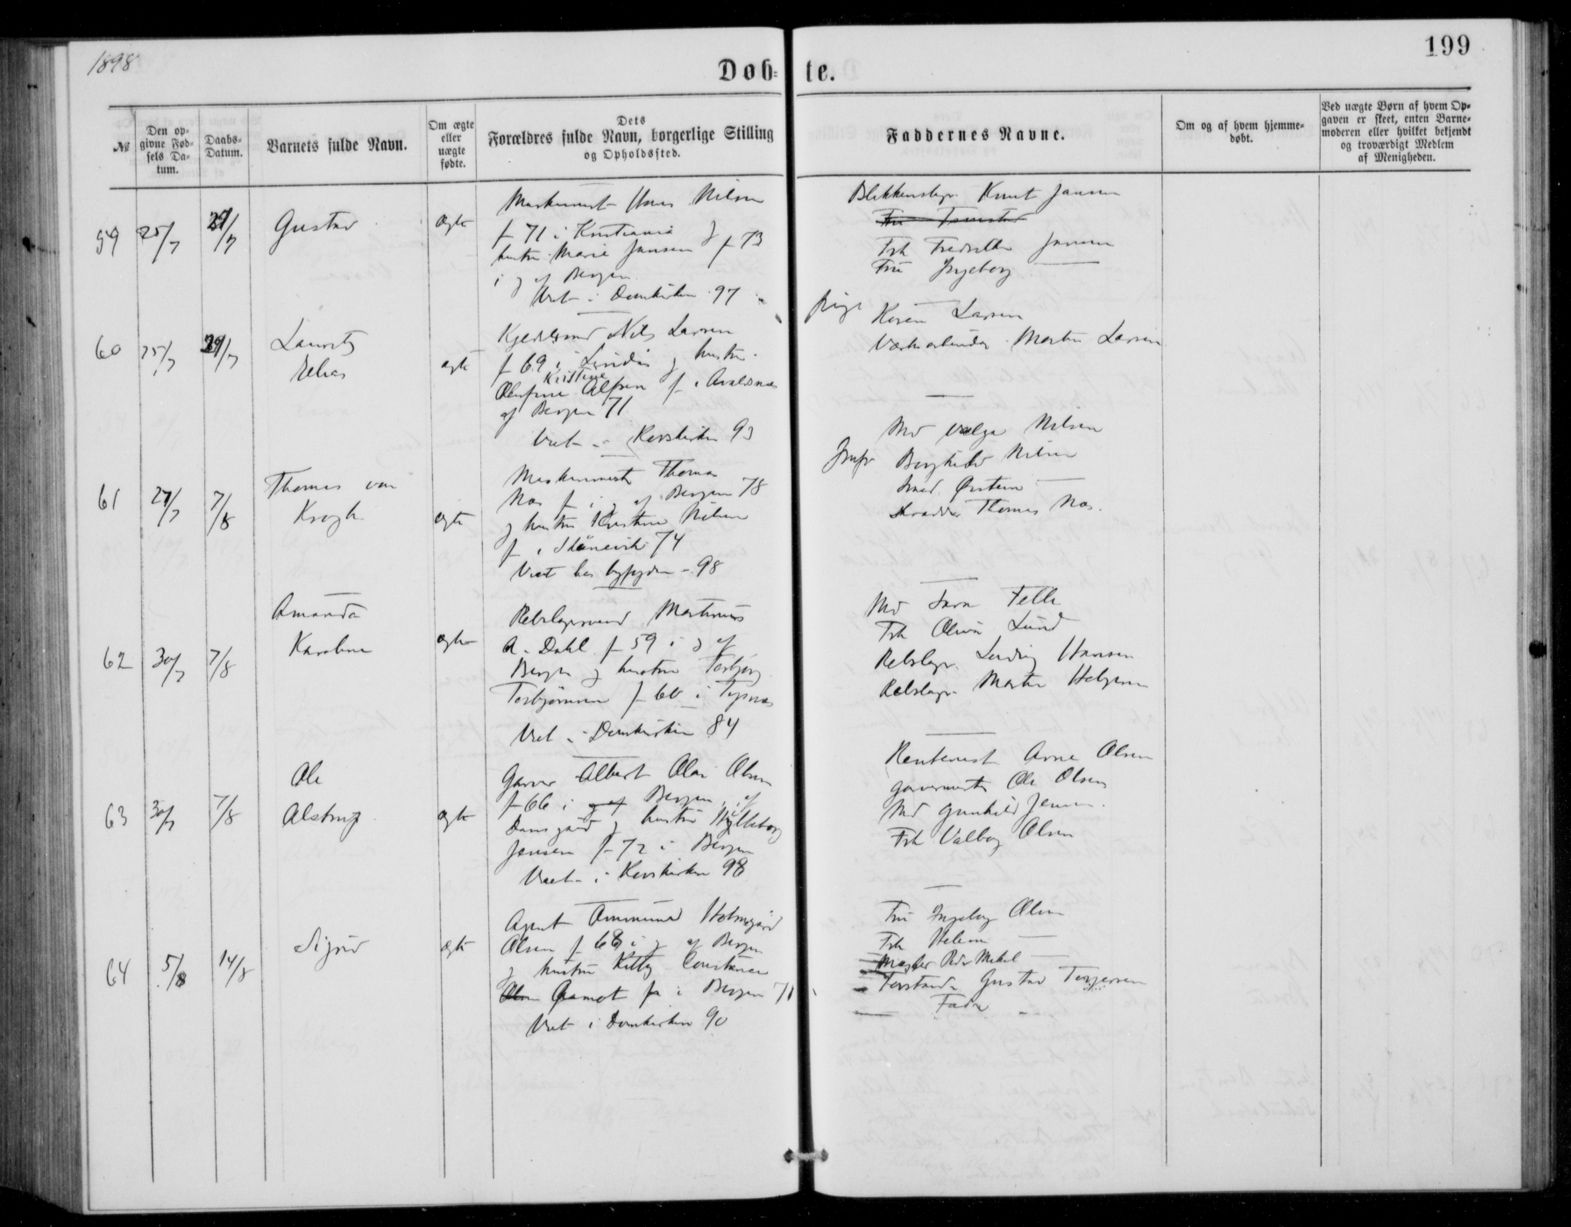 1898
199
Døb-te.
№
Den op-
givne Fød-
sels Da-
tum.
Daabs-
Datum.
Barnets fulde Navn.
Om ægte
eller
uægte
fødte.
Dets
Forældres fulde Navn, borgerlige Stilling
og Opholdssted.
Faddernes Navne.
Om og af hvem hjemme-
døbt.
Ved uægte Børn af hvem Op-
gaven er skeet, enten Barne-
moderen eller hvilket bekjendt
og troværdigt Medlem
af Menigheden.
59 25/7 /7 Gustav ægte
Maskinist Nilsen
f 71 i Kristiania g f 73
hustru Marie Jansen
i g af Bergen
Viet i Domkirken 97
Blikkenslager Knut Jansen
Frk Fredrikke Jansen
Fru Ingeborg —
60 25/7 /7 Lauritz
Elias
ægte
Kjedelsmed Nils Larsen
f 69 i Lindås g hustru
Kristine
f i Avaldsnes
af Bergen 71
Viet i Korskirken 93
pige Karen Larsen
Værkarbeider Martin Larsen
61 27/7 7/8 Thomas von
Krogh
ægte
Maskinmester Thomas
Næs f i g af Bergen 78
g hustru Kristine Nilsen
f i Skånevik 74
Viet hos byfogden - 98
Md Nilsen
Jomfr Borghild Nilsen
Smed
Skrædder Thomas Næs.
62 30/7 7/8 Amanda
Karoline
ægte
Rebslagersvend Martinus
A. Dahl f 59 i g af
Bergen g hustru Torbjørg
Torbjørnsen f 60 i Tysnes
Viet i Domkirken 84
Md Telle
Frk Olivia Lund
Rebslager Ludvig Hansen
Rebslager Martin Helgesen
63 30/7 7/8 Ole
Alstrup
ægte
Garver Albert Olai Olsen
f 66 i Bergen af
Damsgård g hustru
Jansen f 72 i Bergen
Viet i Korskirken 98
Rentenist Arne Olsen
garvermester Ole Olsen
Md Gunhild Jensen
Frk Valborg Olsen
64 5/8 14/8 Sigrid ægte
Agent Ammund Holmegård
Olsen f 68 i g af Bergen
g hustru Kitty Constance
Gramet f i Bergen 71
Viet i Domkirken 90
Fru Ingeborg Olsen
Frk Helene —
Mægler Peder Mikal —
Forstander Gustav Torgersen
Fader